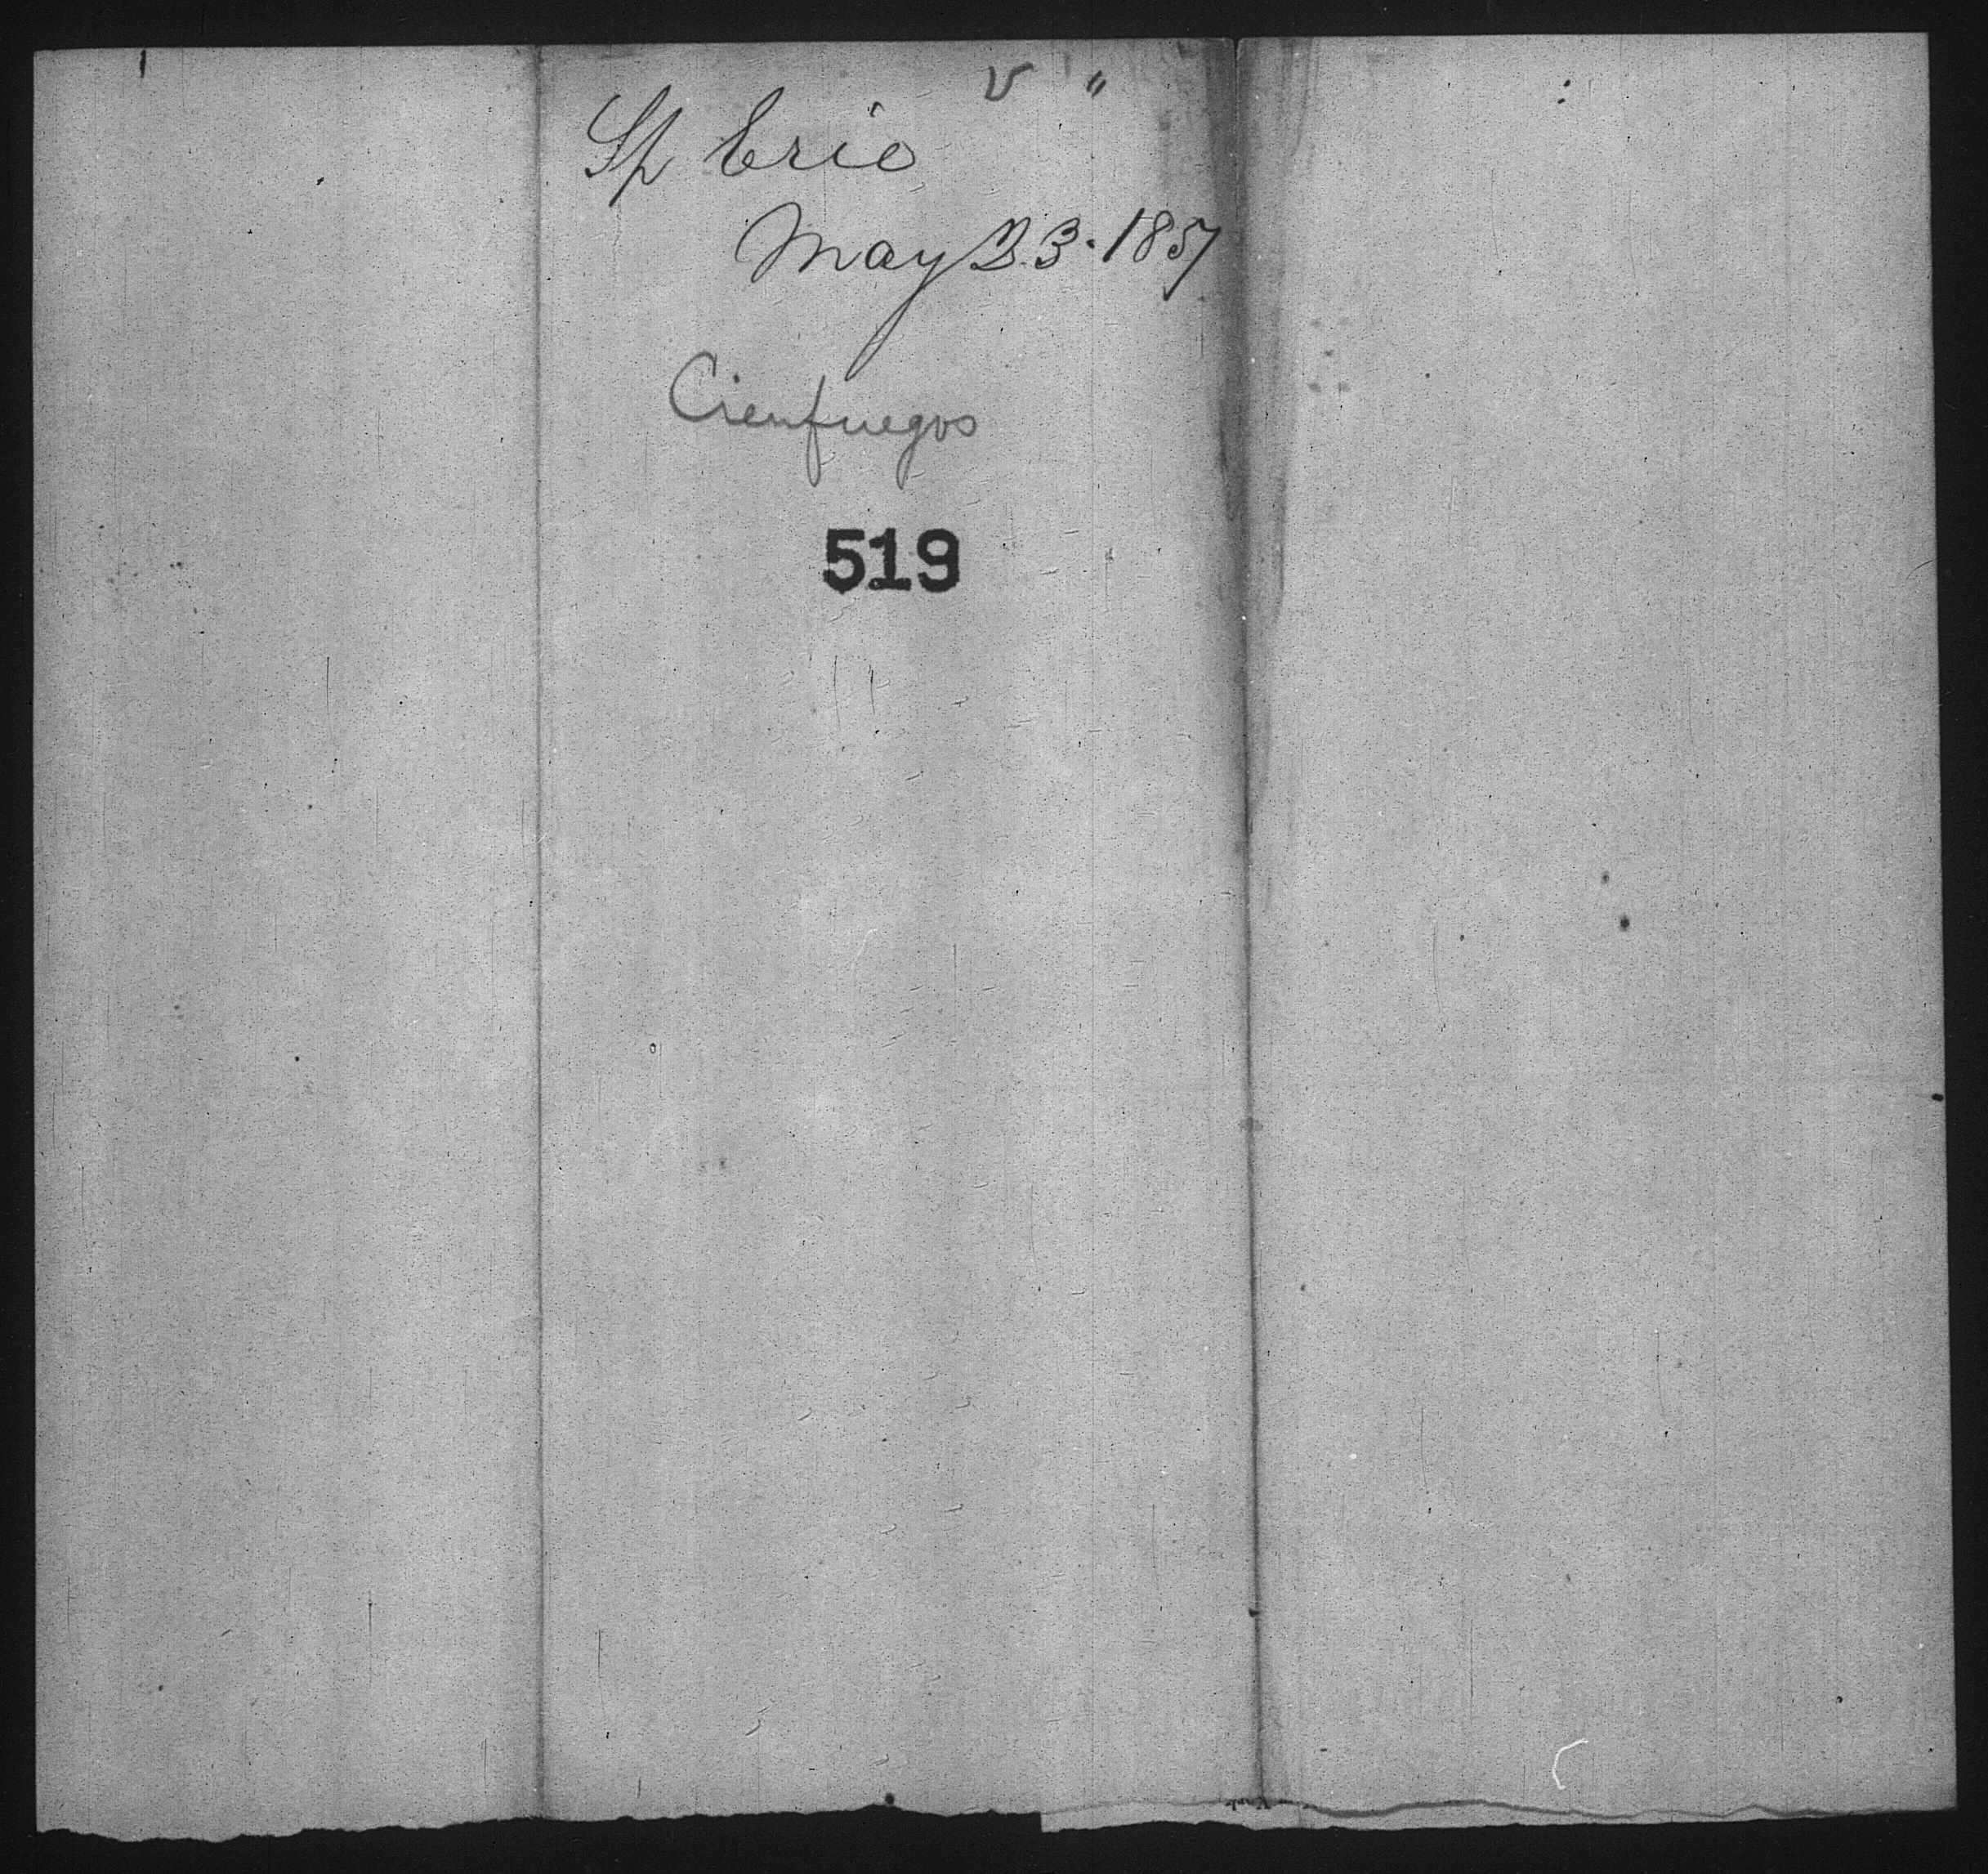 V "
Sp Erie
May 23. 1857
Cienfuegos
519